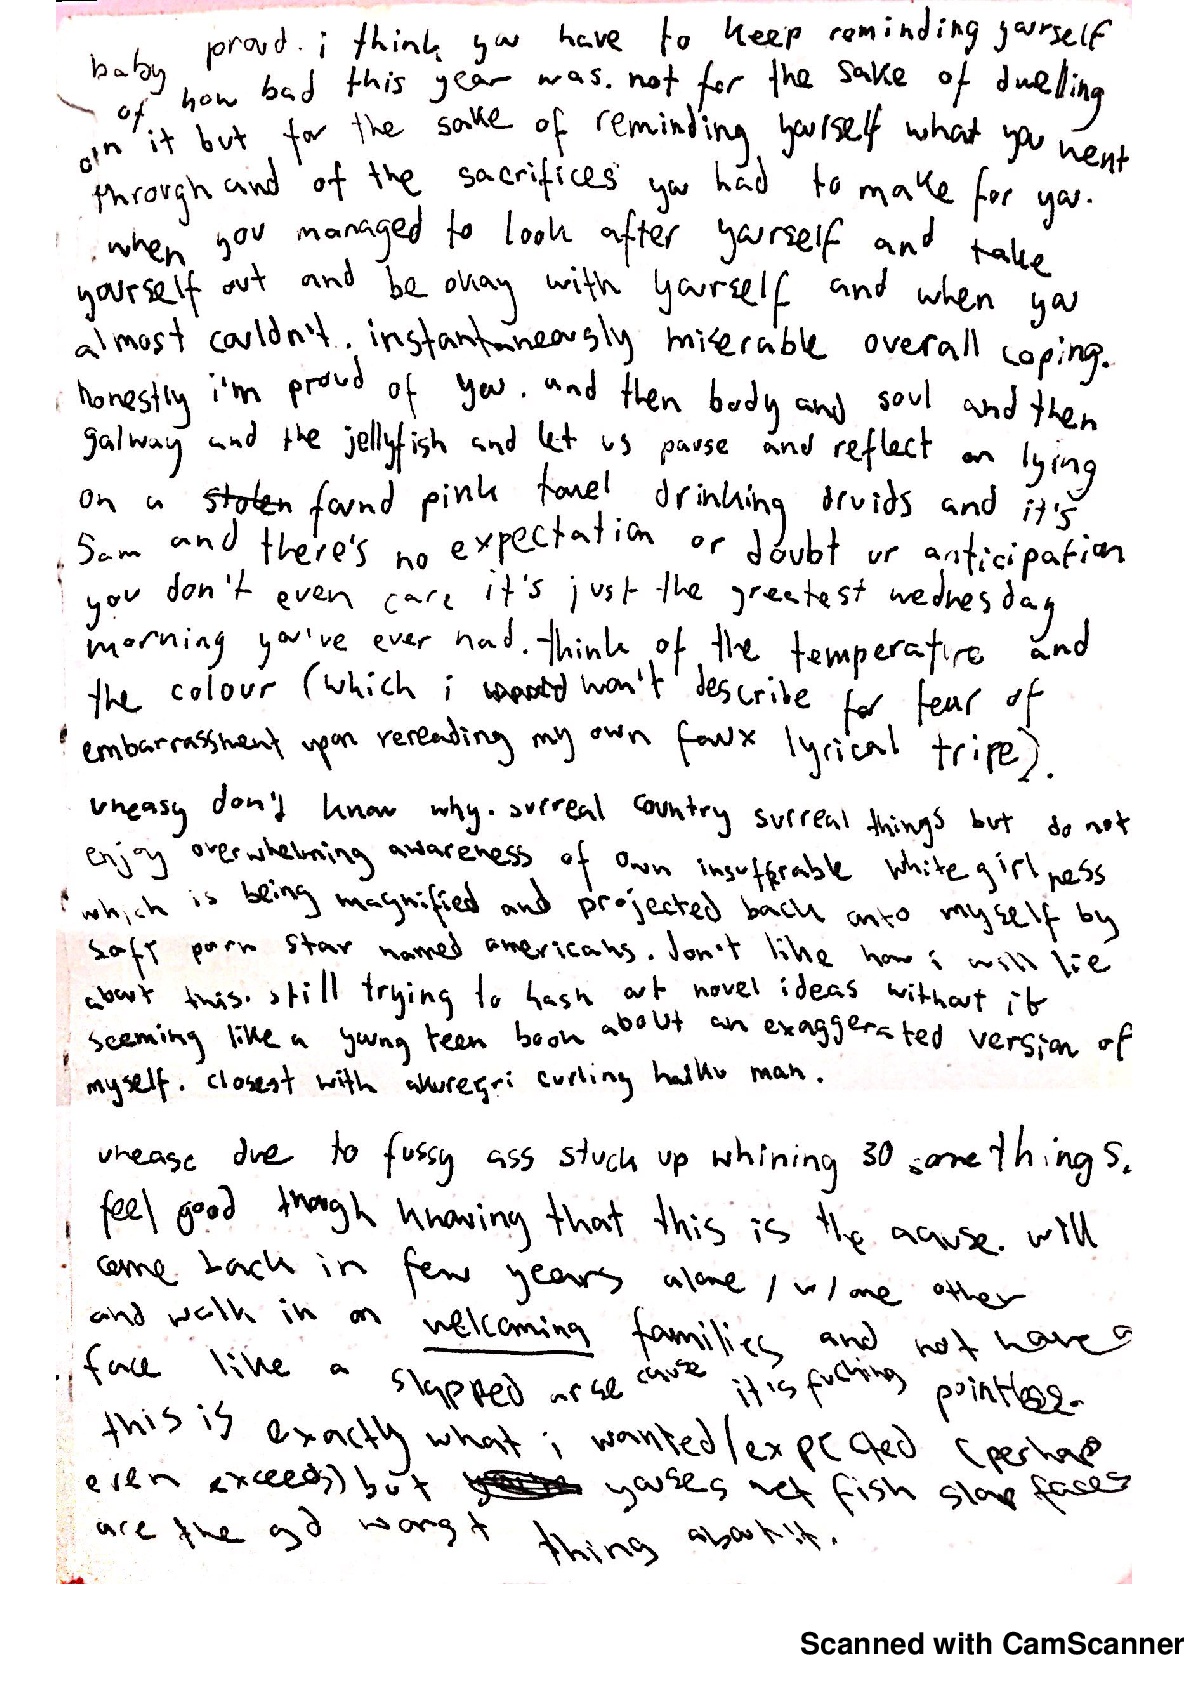 baby proud. i think you have to keep reminding yourself
of how bad this year was. not for the sake of dwelling
on it but for the sake of reminding yourself what you went
through and of the sacrifices you had to make for you.
when you managed to look after yourself and take
yourself out and be okay with yourself and when you
almost couldn't. instantaneously miserable overall coping.
honestly i'm proud of you. and then body and soul and then
galway and the jellyfish and let us pause and reflect on lying
on a stolen found pink towel drinking druids and it's
5am and there's no expectation or doubt or anticipation
you don't even care it's just the greatest wednesday
morning you've ever had. think of the temperature and
the colour (which i won't describe for fear of
embarrassment upon rereading my own faux lyrical tripe).
uneasy don't know why. surreal country surreal things but do not
enjoy overwhelming awareness of own insufferable white girl ness
which is being magnified and projected back onto myself by
soft porn star named americans. don't like how i will lie
about this. still trying to hash out novel ideas without it
seeming like a young teen book about an exaggerated version of
myself. closest with curling haiku man.
unease due to fussy ass stuck up whining 30 somethings.
feel good though knowing that this is the cause. will
come back in few years alone / w/ one other
and walk in on welcoming families and not have a
face like a slapped arse cause it's fucking pointless.
this is exactly what i wanted/expected (perhaps
even exceeds) but youses wet fish slap faces
are the worst thing about it.
Scanned with CamScanner